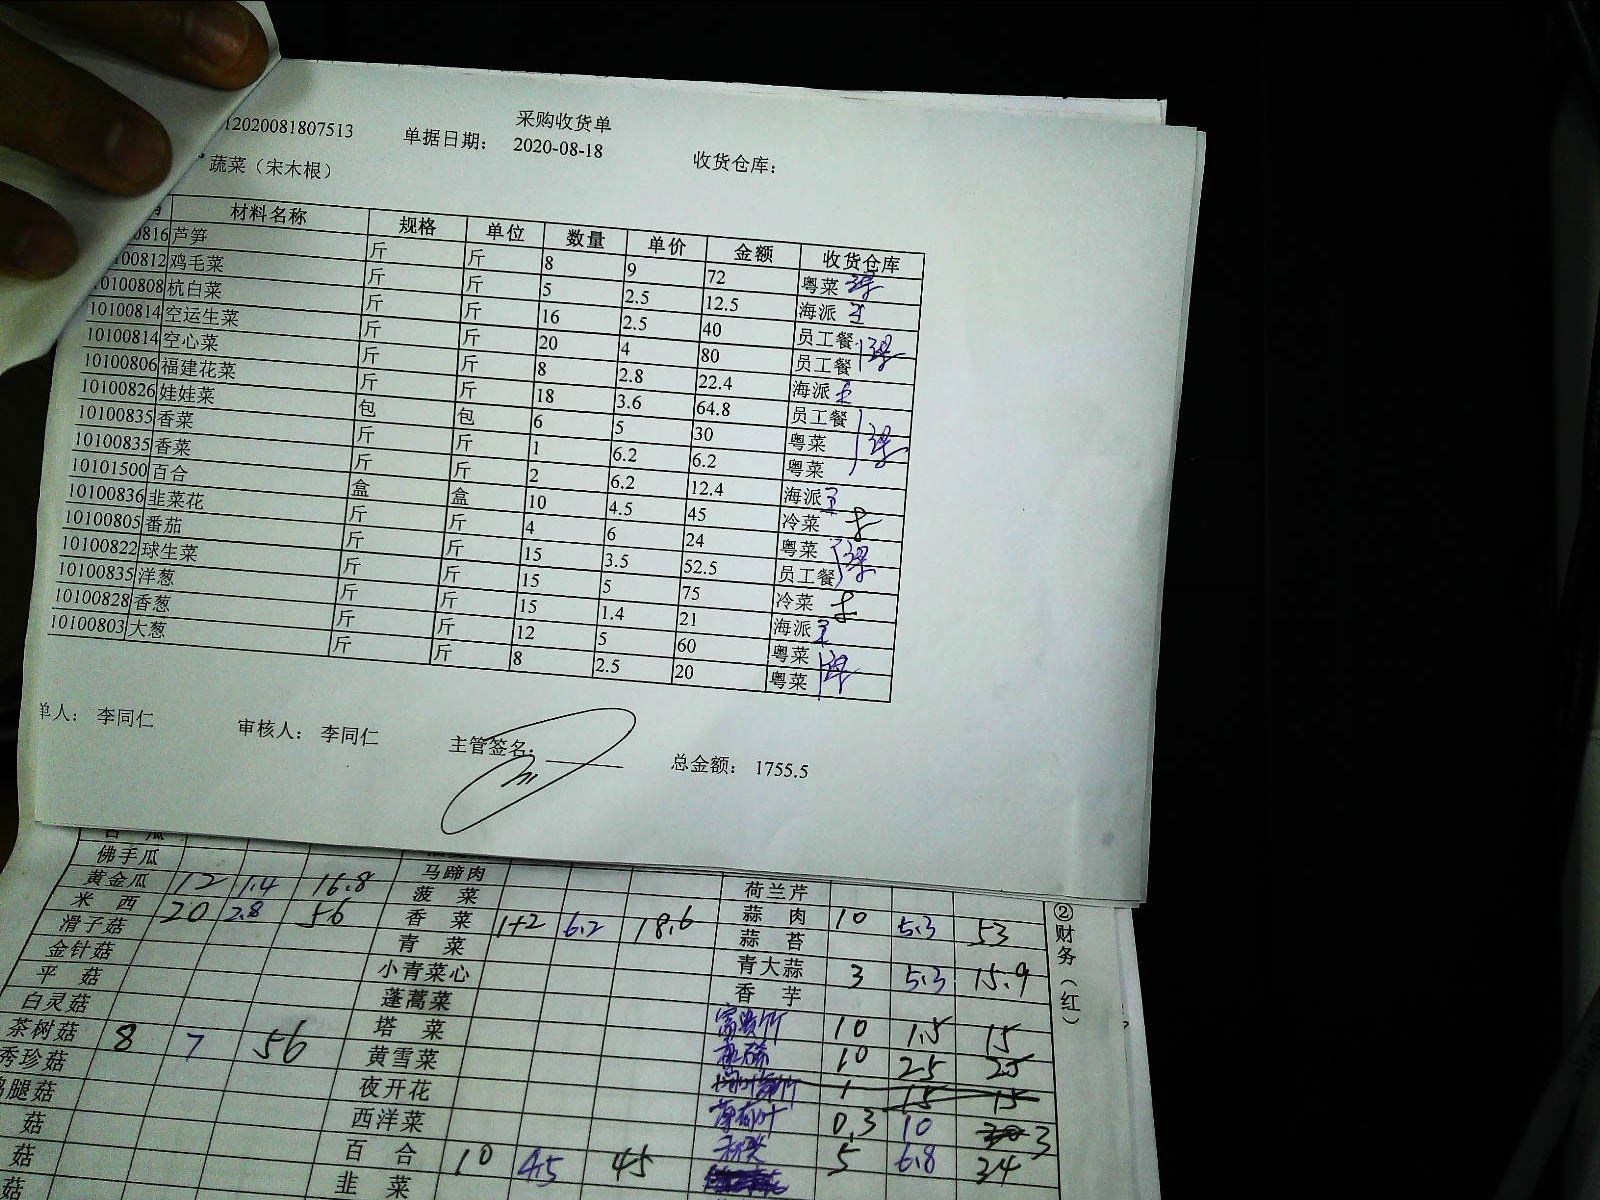 采购收货单
12020081807513 单据日期： 2020-08-18 收货仓库：
蔬菜（宋木根）
材料名称 规格 单位 数量 单价 金额 收货仓库
0816 芦笋 斤 斤 8 9 72 粤菜
100812 鸡毛菜 斤 斤 5 2.5 12.5 海派
10100808 杭白菜 斤 斤 16 2.5 40 员工餐
10100814 空运生菜 斤 斤 20 4 80 员工餐
10100814 空心菜 斤 斤 8 2.8 22.4 海派
10100806 福建花菜 斤 斤 18 3.6 64.8 员工餐
10100826 娃娃菜 包 包 6 5 30 粤菜
10100835 香菜 斤 斤 1 6.2 6.2 粤菜
10100835 香菜 斤 斤 2 6.2 12.4 海派
10101500 百合 盒 盒 10 4.5 45 冷菜
10100836 韭菜花 斤 斤 4 6 24 粤菜
10100805 番茄 斤 斤 15 3.5 52.5 员工餐
10100822 球生菜 斤 斤 15 5 75 冷菜
10100835 洋葱 斤 斤 15 1.4 21 海派
10100828 香葱 斤 斤 12 5 60 粤菜
10100803 大葱 斤 斤 8 2.5 20 粤菜
单人： 李同仁 审核人： 李同仁 主管签名： 总金额： 1755.5
佛手瓜 马蹄肉 荷兰芹
黄金瓜 12 1.4 16.8 菠菜 蒜肉 10 5.3 53
米西 20 2.8 56 香菜 1+2 6.2 18.6 蒜苔
滑子菇 青菜 青大蒜 3 5.3 15.9
金针菇 小青菜心 香芋
平菇 蓬蒿菜 富贵竹 10 1.5 15
白灵菇 塔菜 10 25 25
茶树菇 8 7 56 黄雪菜 1 15 15
秀珍菇 夜开花 薄荷叶 0.3 10 3
腿菇 西洋菜 5 6.8 34
菇 百合 10 4.5 45
菇 韭菜
菇
②财务（红）